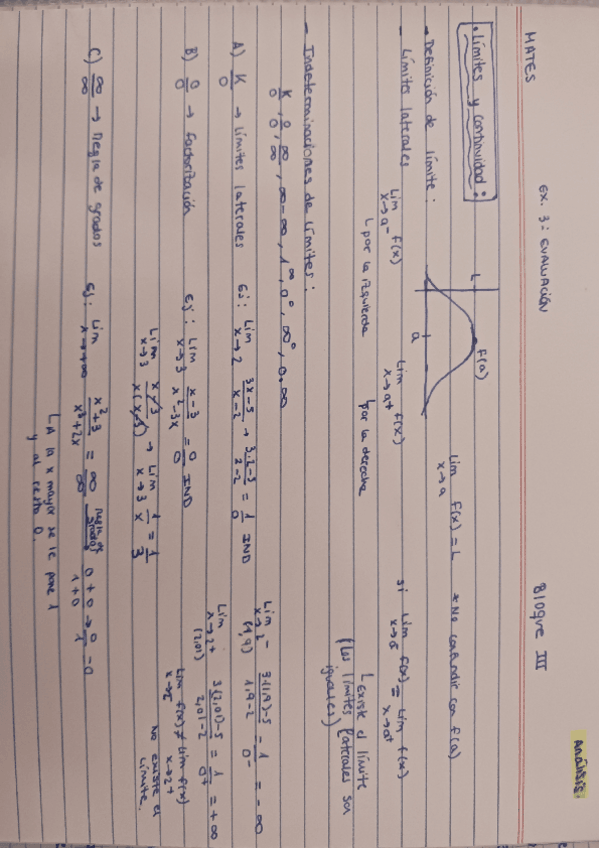 ANÁLISIS.
MATES EX. 3ª EVALUACIÓN BLOQUE III
• Límites y continuidad:
- Definición de límite:
L
f(a)
a
Lim f(x) = L
x→a
* No confundir con f(a)
- Límites laterales
Lim f(x)
x→a⁻
↳ por la izquierda
Lim f(x)
x→a⁺
↳ por la derecha
si Lim f(x) = Lim f(x)
x→a⁻ x→a⁺
↳ Existe el límite
(Los límites laterales son
iguales)
- Indeterminaciones de límites:
K/0, 0/0, ∞/∞, ∞-∞, 1^∞, 0⁰, ∞⁰, 0·∞
A) K/0 → límites laterales
Ej: Lim x→2 3x-5/x-2 → 3·2-5/2-2 = 1/0 IND
Lim x→2⁻ (1,9) 3(1,9)-5/1,9-2 = 1/0⁻ = -∞
Lim x→2⁺ (2,01) 3(2,01)-5/2,01-2 = 1/0⁺ = +∞
Lim f(x) ≠ Lim f(x)
x→2⁻ x→2⁺
No existe el
límite.
B) 0/0 → factorización
Ej: Lim x→3 x-3/x²-3x = 0/0 IND
Lim x→3 x-3/x(x-3) → Lim x→3 1/x = 1/3
C) ∞/∞ → Regla de grados
Ej: Lim x→+∞ x²+3/x³+2x = ∞/∞ Regla de grados 0+0/1+0 → 0/1 = 0
↳ A la x mayor se le pone 1
y al resto 0.